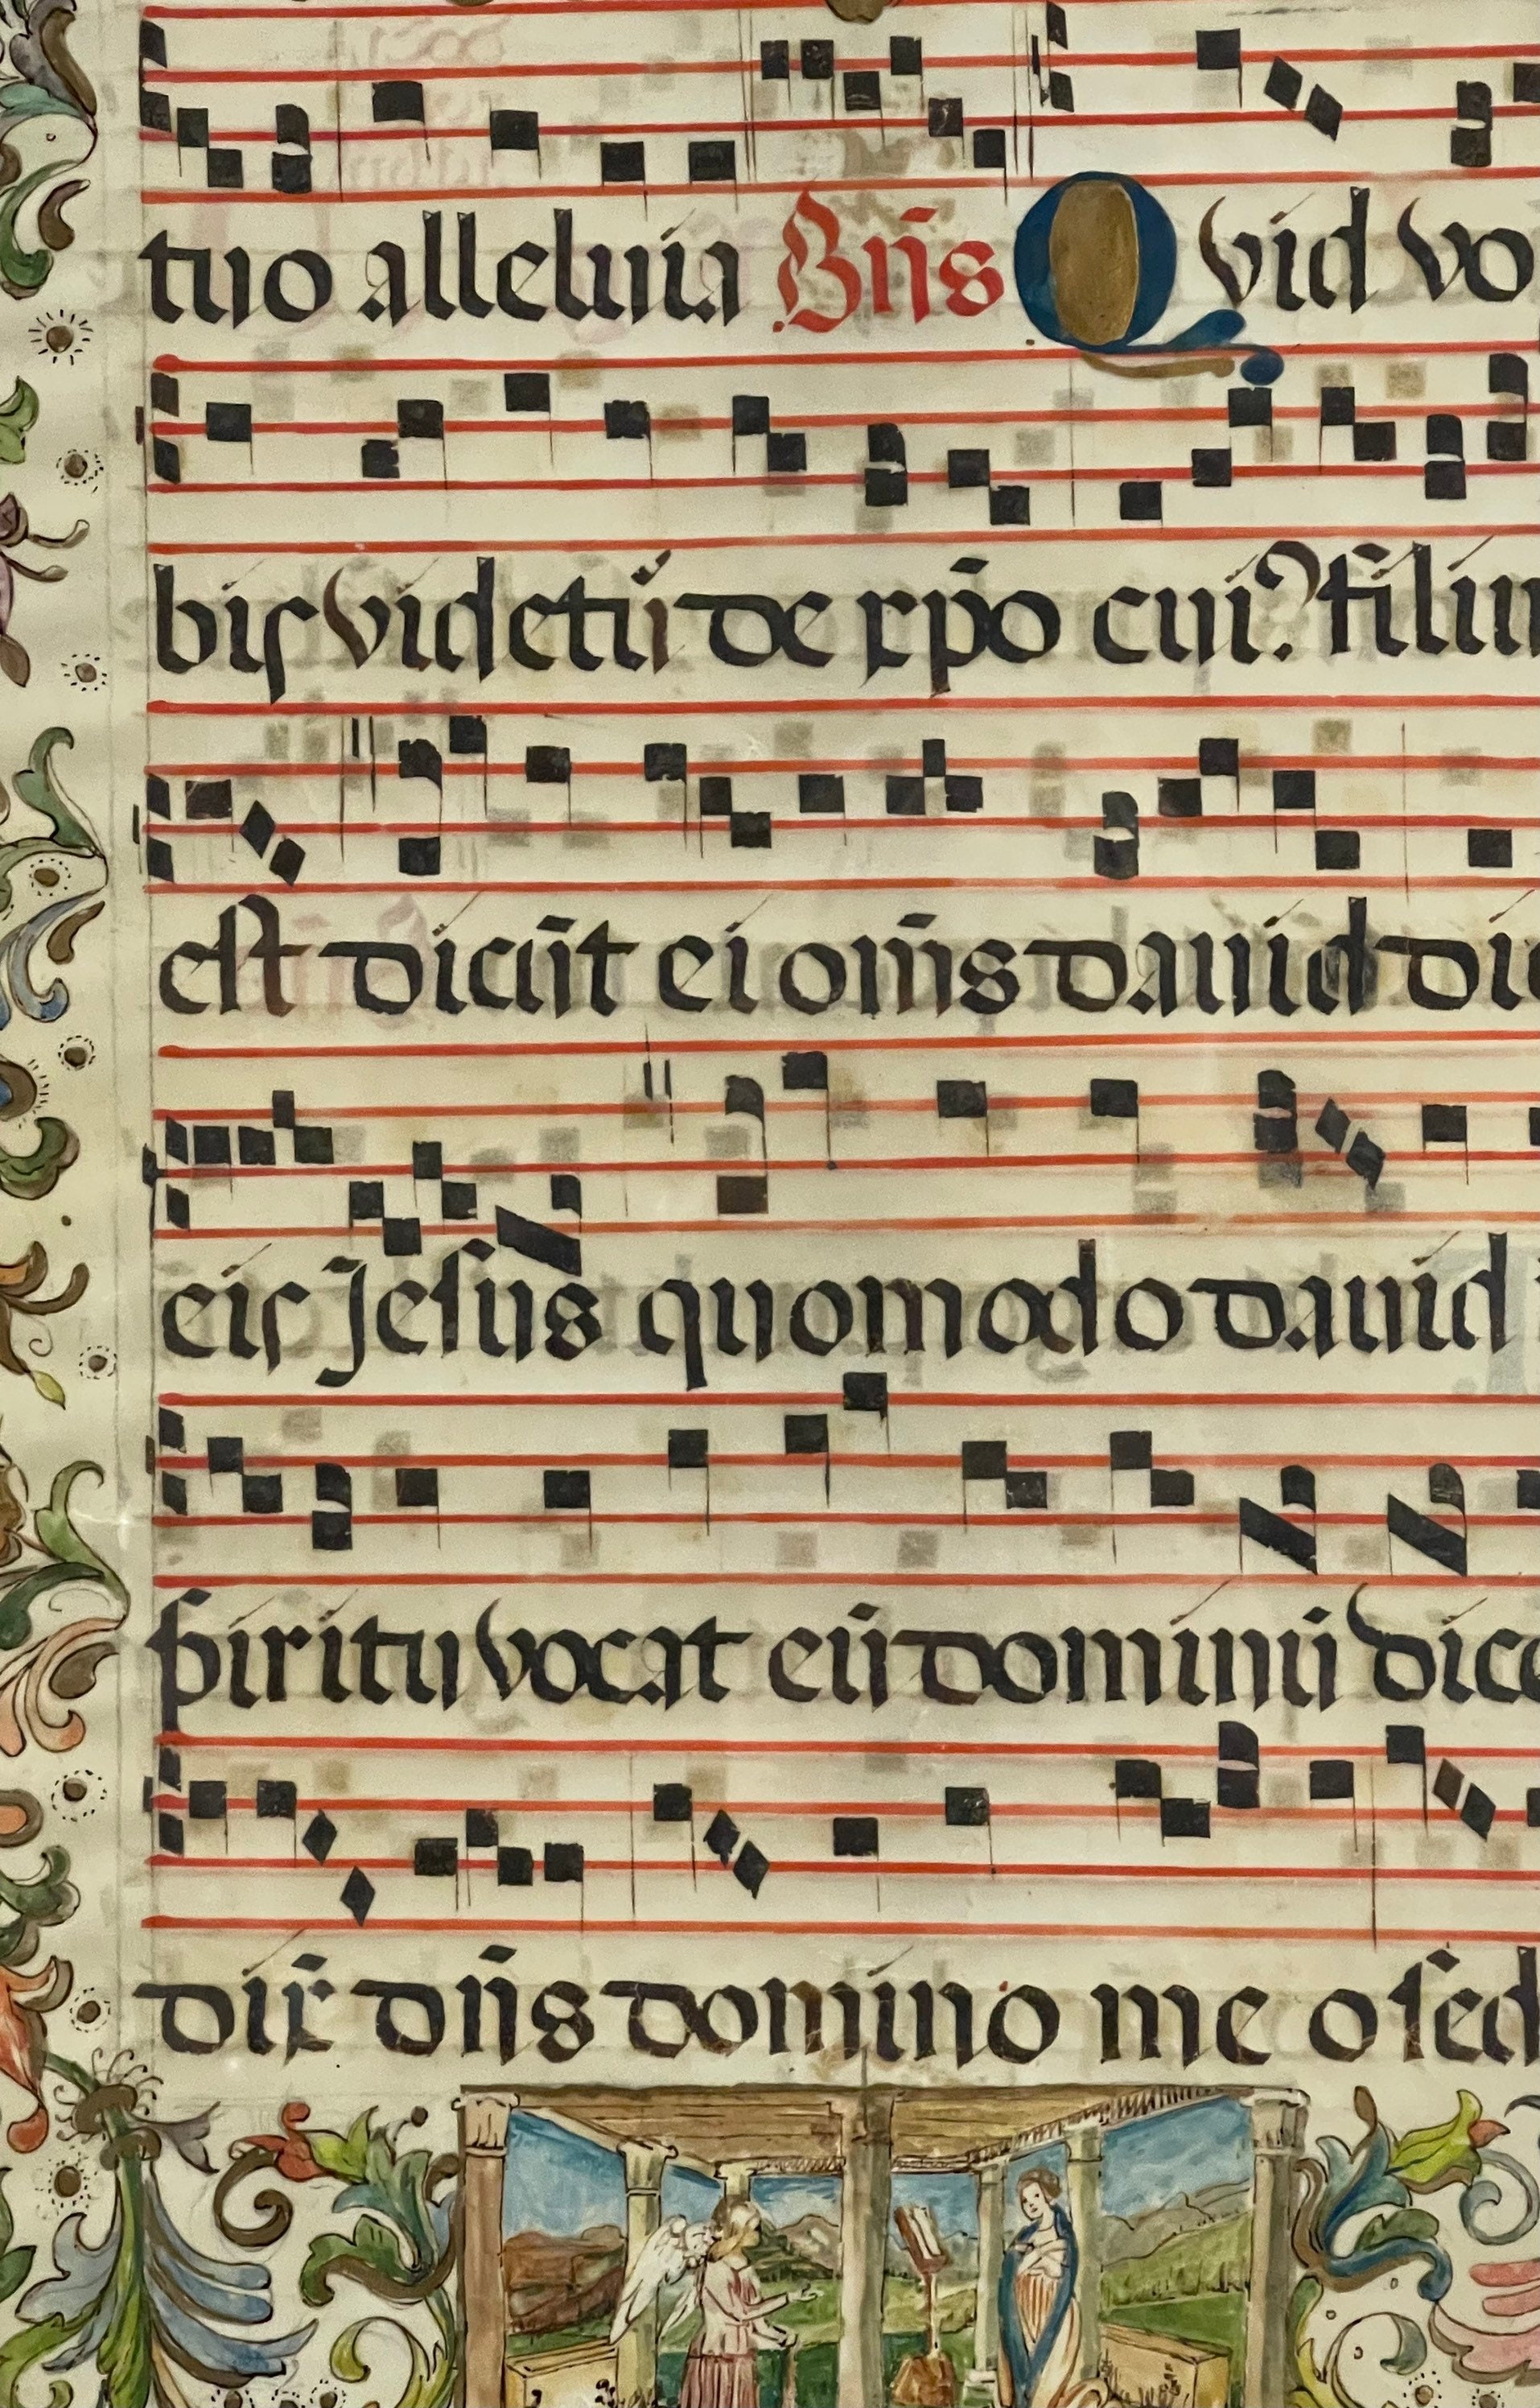 tuo alleluia Bñs Quid vo
bis videtũ de xp̃o cui? fili
est dicũt ei om̃s dauid di
eis Jesus quomodo dauid
spiritu vocat eũ dominũ dice
dix̃ dñs domino meo sed